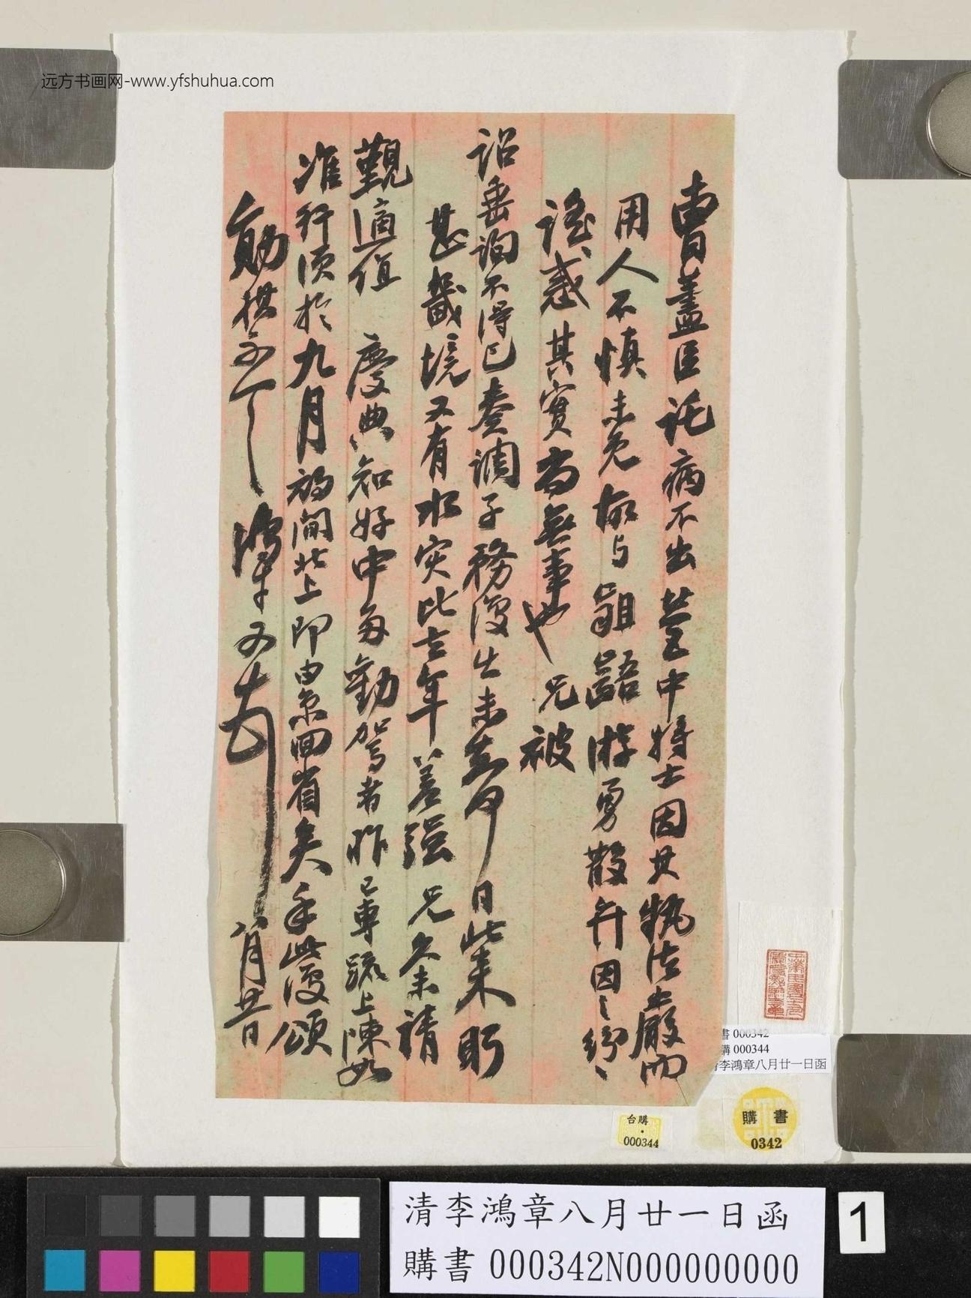 远方书画网-www.yfshuhua.com
曹蓋臣託病不出營中將士因其執法太嚴而
用人不慎未免齟齬游勇散弁因之紛紛
謠惑其實尚無事也兄被
詔垂詢不得已奏調子務復出未知何日此來
甚畿境又有水災比去年差強兄久未請
覲適值慶典知好中多勸駕者昨已專疏上陳如
准行須於九月初間北上即由京回省矣手此復頌
勛祺不一 鴻章頓首 八月廿一日
書 000342
購 000344
清李鴻章八月廿一日函
台購
000344
購書
0342
清李鴻章八月廿一日函
購書 000342N000000000
1